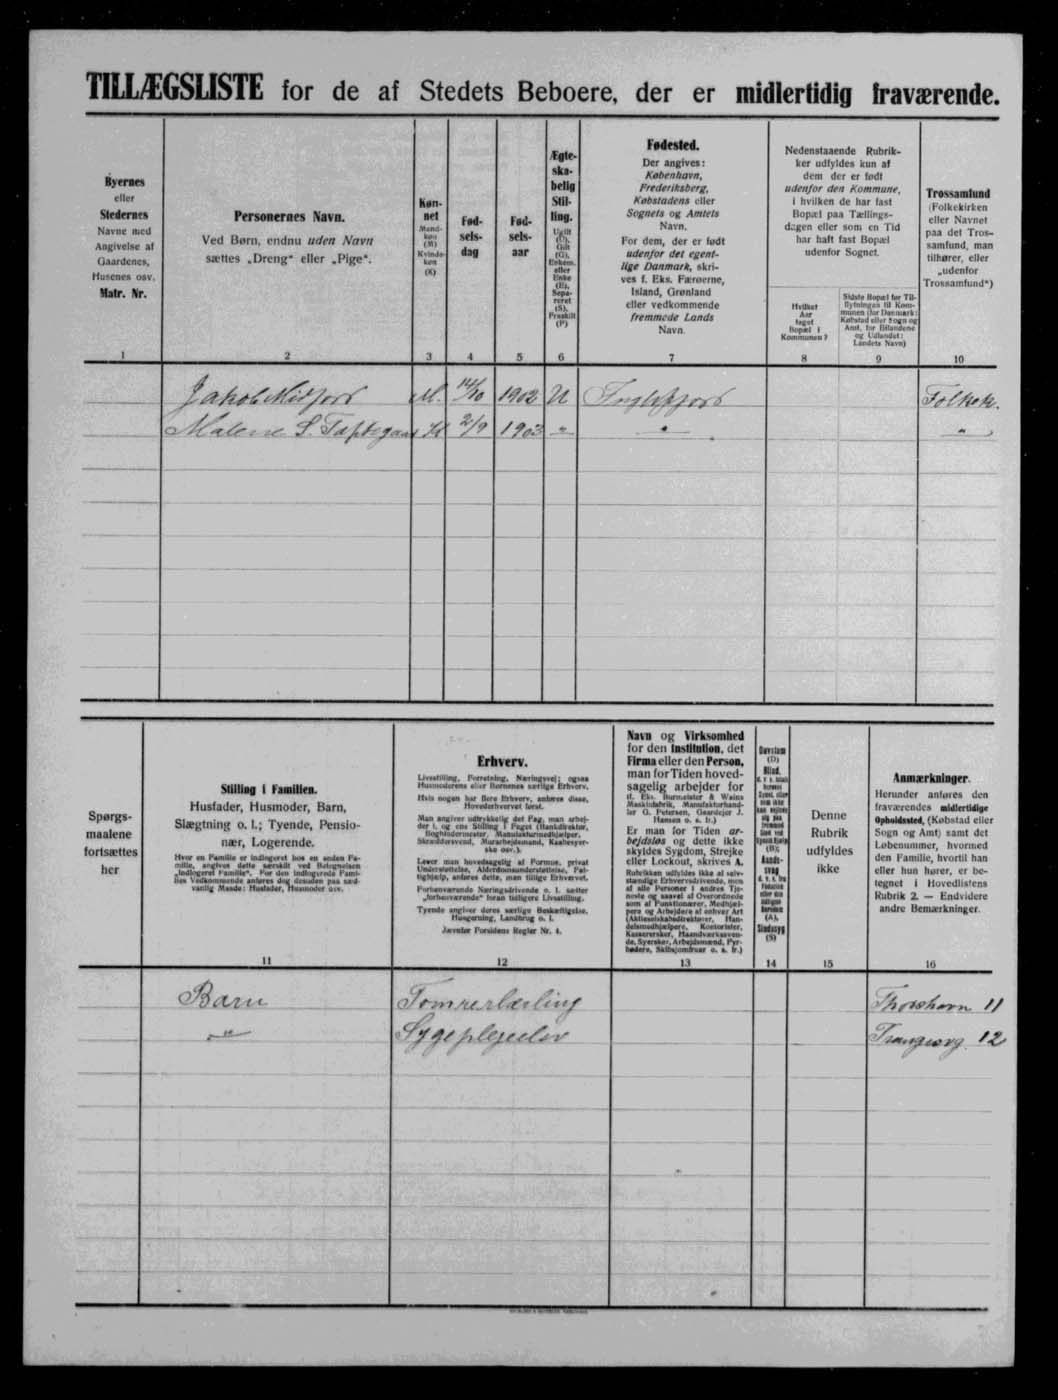 TILLÆGSLISTE for de af Stedets Beboere, der er midlertidig fraværende.
Byernes
eller
Stedernes
Navne med
Angivelse af
Gaardenes,
Husenes osv.
Matr. Nr.
Personernes Navn.
Ved Børn, endnu uden Navn
sættes „Dreng“ eller „Pige“.
Køn-
net
Mand-
køn
(M)
Kvinde-
køn
(K)
Fød-
sels-
dag
Fød-
sels-
aar
Ægte-
ska-
belig
Stil-
ling.
Ugift
(U),
Gift
(G),
Enkem.
eller
Enke
(E),
Sepa-
reret
(S),
Fraskilt
(F)
Fødested.
Der angives:
København,
Frederiksberg,
Købstadens eller
Sognets og Amtets
Navn.
For dem, der er født
udenfor det egent-
lige Danmark, skri-
ves f. Eks. Færøerne,
Island, Grønland
eller vedkommende
fremmede Lands
Navn.
Nedenstaaende Rubrik-
ker udfyldes kun af
dem der er født
udenfor den Kommune,
i hvilken de har fast
Bopæl paa Tællings-
dagen eller som en Tid
har haft fast Bopæl
udenfor Sognet.
Hvilket
Aar
taget
Bopæl i
Kommunen?
Sidste Bopæl før Til-
flytningen til Kom-
munen (for Danmark:
Købstad eller Sogn og
Amt, for Bilandene
og Udlandet:
Landets Navn)
Trossamfund
(Folkekirken
eller Navnet
paa det Tros-
samfund, man
tilhører, eller
„udenfor
Trossamfund“)
1 2 3 4 5 6 7 8 9 10
Jakob Midjord M. 14/10 1902 U Folkek.
Malene S. K 2/9 1903 „ „ „
Spørgs-
maalene
fortsættes
her
Stilling i Familien.
Husfader, Husmoder, Barn,
Slægtning o. l.; Tyende, Pensio-
nær, Logerende.
Hvor en Familie er indlogeret hos en anden Fa-
milie, angives dette særskilt ved Betegnelsen
„indlogeret Familie“. For den indlogerede Fami-
lies Vedkommende anføres dog desuden paa sæd-
vanlig Maade: Husfader, Husmoder osv.
Erhverv.
Livsstilling, Forretning, Næringsvej; ogsaa
Husmoderens eller Børnenes særlige Erhverv.
Hvis nogen har flere Erhverv, anføres disse,
Hovederhvervet først.
Man angiver udtrykkelig det Fag, man arbej-
der i, og ens Stilling i Faget (Bankdirektør,
Bogbindermester, Manufakturmedhjælper,
Skræddersvend, Murarbejdsmand, Kaabesyer-
ske osv.).
Lever man hovedsagelig af Formue, privat
Understøttelse, Alderdomsunderstøttelse, Fat-
tighjælp, anføres dette, men tillige Erhvervet.
Forhenværende Næringsdrivende o. l. sætter
„forhenværende“ foran tidligere Livsstilling.
Tyende angiver deres særlige Beskæftigelse,
Husgerning, Landbrug o. l.
Jævnfør Forsidens Regler Nr. 4.
Navn og Virksomhed
for den Institution, det
Firma eller den Person,
man for Tiden hoved-
sagelig arbejder for
(f. Eks. Burmeister & Wains
Maskinfabrik, Manufakturhand-
ler G. Petersen, Gaardejer J.
Hansen o. s. fr.)
Er man for Tiden ar-
bejdsløs og dette ikke
skyldes Sygdom, Strejke
eller Lockout, skrives A.
Rubrikken udfyldes ikke af selv-
stændige Erhvervsdrivende, men
af alle Personer i andres Tje-
neste og saavel af Overordnede
som af Funktionærer, Medhjæl-
pere og Arbejdere af enhver Art
(Aktieselskabsdirektører, Han-
delsmedhjælpere, Kontorister,
Kassererskер, Haandværkssven-
de, Syersker, Arbejdsmænd, Fyr-
bødere, Skibsjomfruer o. s. fr.)
Døvstum
(D)
Blind,
(B);
Aands-
svag
(A),
Sindssyg
(S)
Denne
Rubrik
udfyldes
ikke
Anmærkninger.
Herunder anføres den
fraværendes midlertidige
Opholdssted, (Købstad eller
Sogn og Amt) samt det
Løbenummer, hvormed
den Familie, hvortil han
eller hun hører, er be-
tegnet i Hovedlistens
Rubrik 2. — Endvidere
andre Bemærkninger.
11 12 13 14 15 16
Barn Tømrerlærling Thorshavn 11
„ Sygeplejeelev Trangisvg. 12